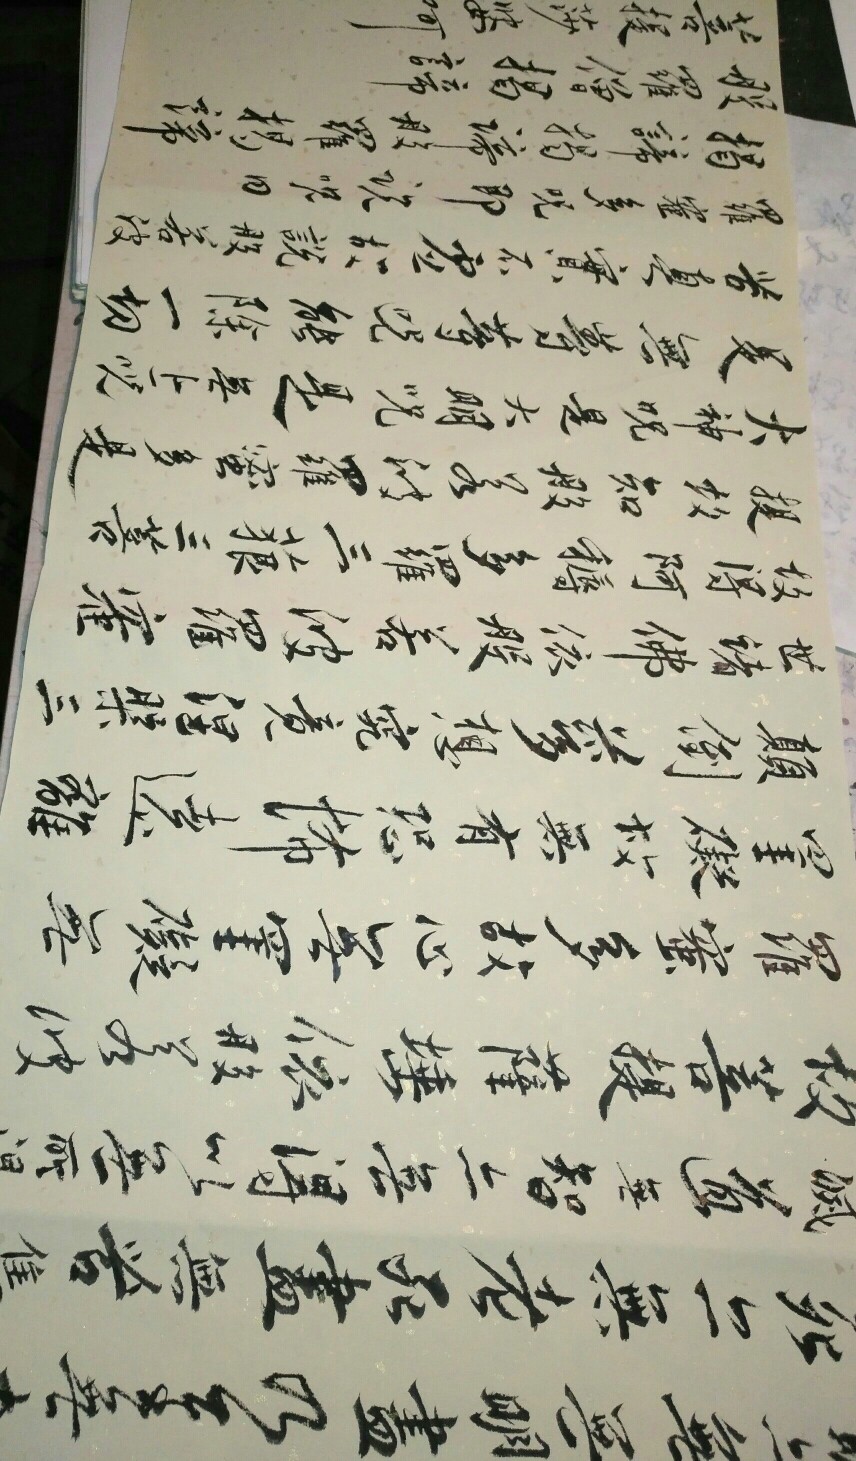 亦無無明盡乃至無老
死亦無老死盡無苦集
滅道無智亦無得以無所得
故菩提薩埵依般若波
羅蜜多故心無罣礙無
罣礙故無有恐怖遠離
顛倒夢想究竟涅槃三
世諸佛依般若波羅蜜
故得阿耨多羅三藐三菩
提故知般若波羅蜜多是
大神咒是大明咒是無上咒
是無等等咒能除一切
苦真實不虛故說般若波
羅蜜多咒即說咒曰
揭諦揭諦般羅揭諦
般羅僧揭諦
菩提莎婆訶